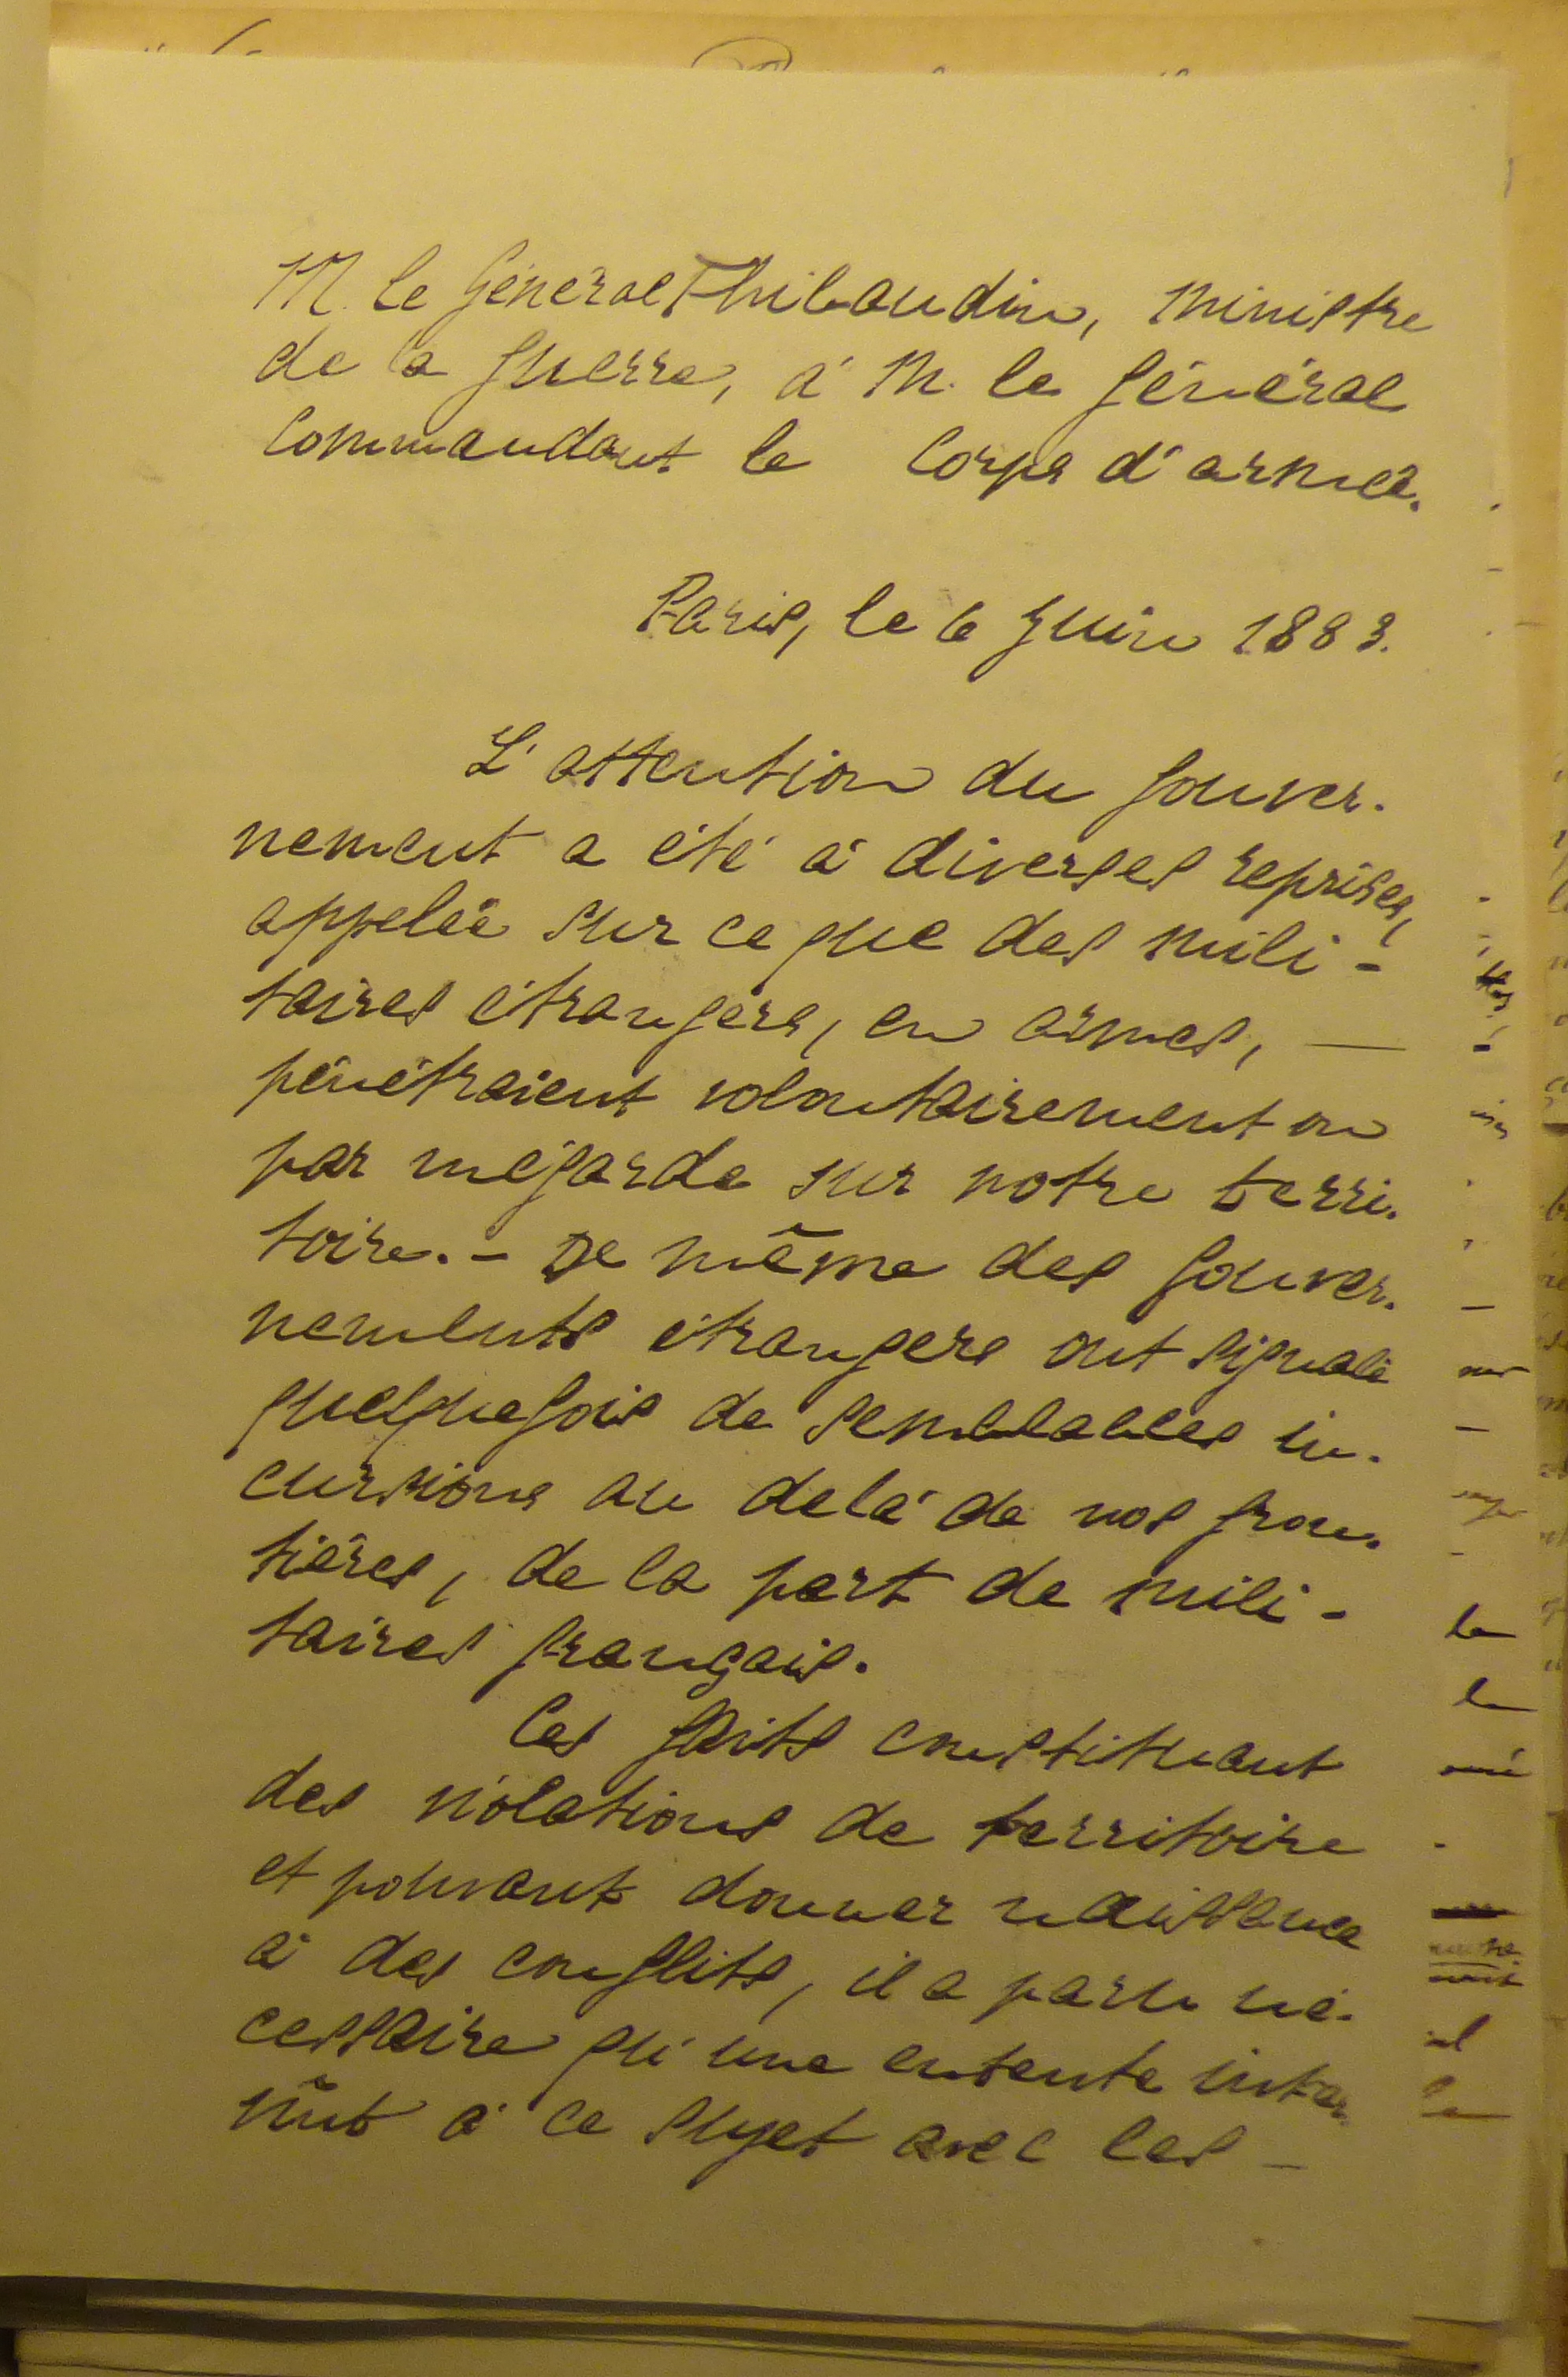 M. le Général Thibaudin, Ministre
de la Guerre, à M. le Général
Commandant le Corps d'armée.
Paris, le 6 Juin 1883.
L'attention du Gouver-
nement a été à diverses reprises,
appelée sur ce que des mili-
taires étrangers, en armes, —
pénétraient volontairement ou
par mégarde sur notre terri-
toire. - De même des Gouver-
nements étrangers ont signalé
quelquefois de semblables in-
cursions au delà de nos fron-
tières, de la part de mili-
taires français.
Ces faits constituant
des violations de territoire
et pouvant donner naissance
à des conflits, il a paru né-
cessaire qu'une entente inter-
vînt à ce sujet avec les -